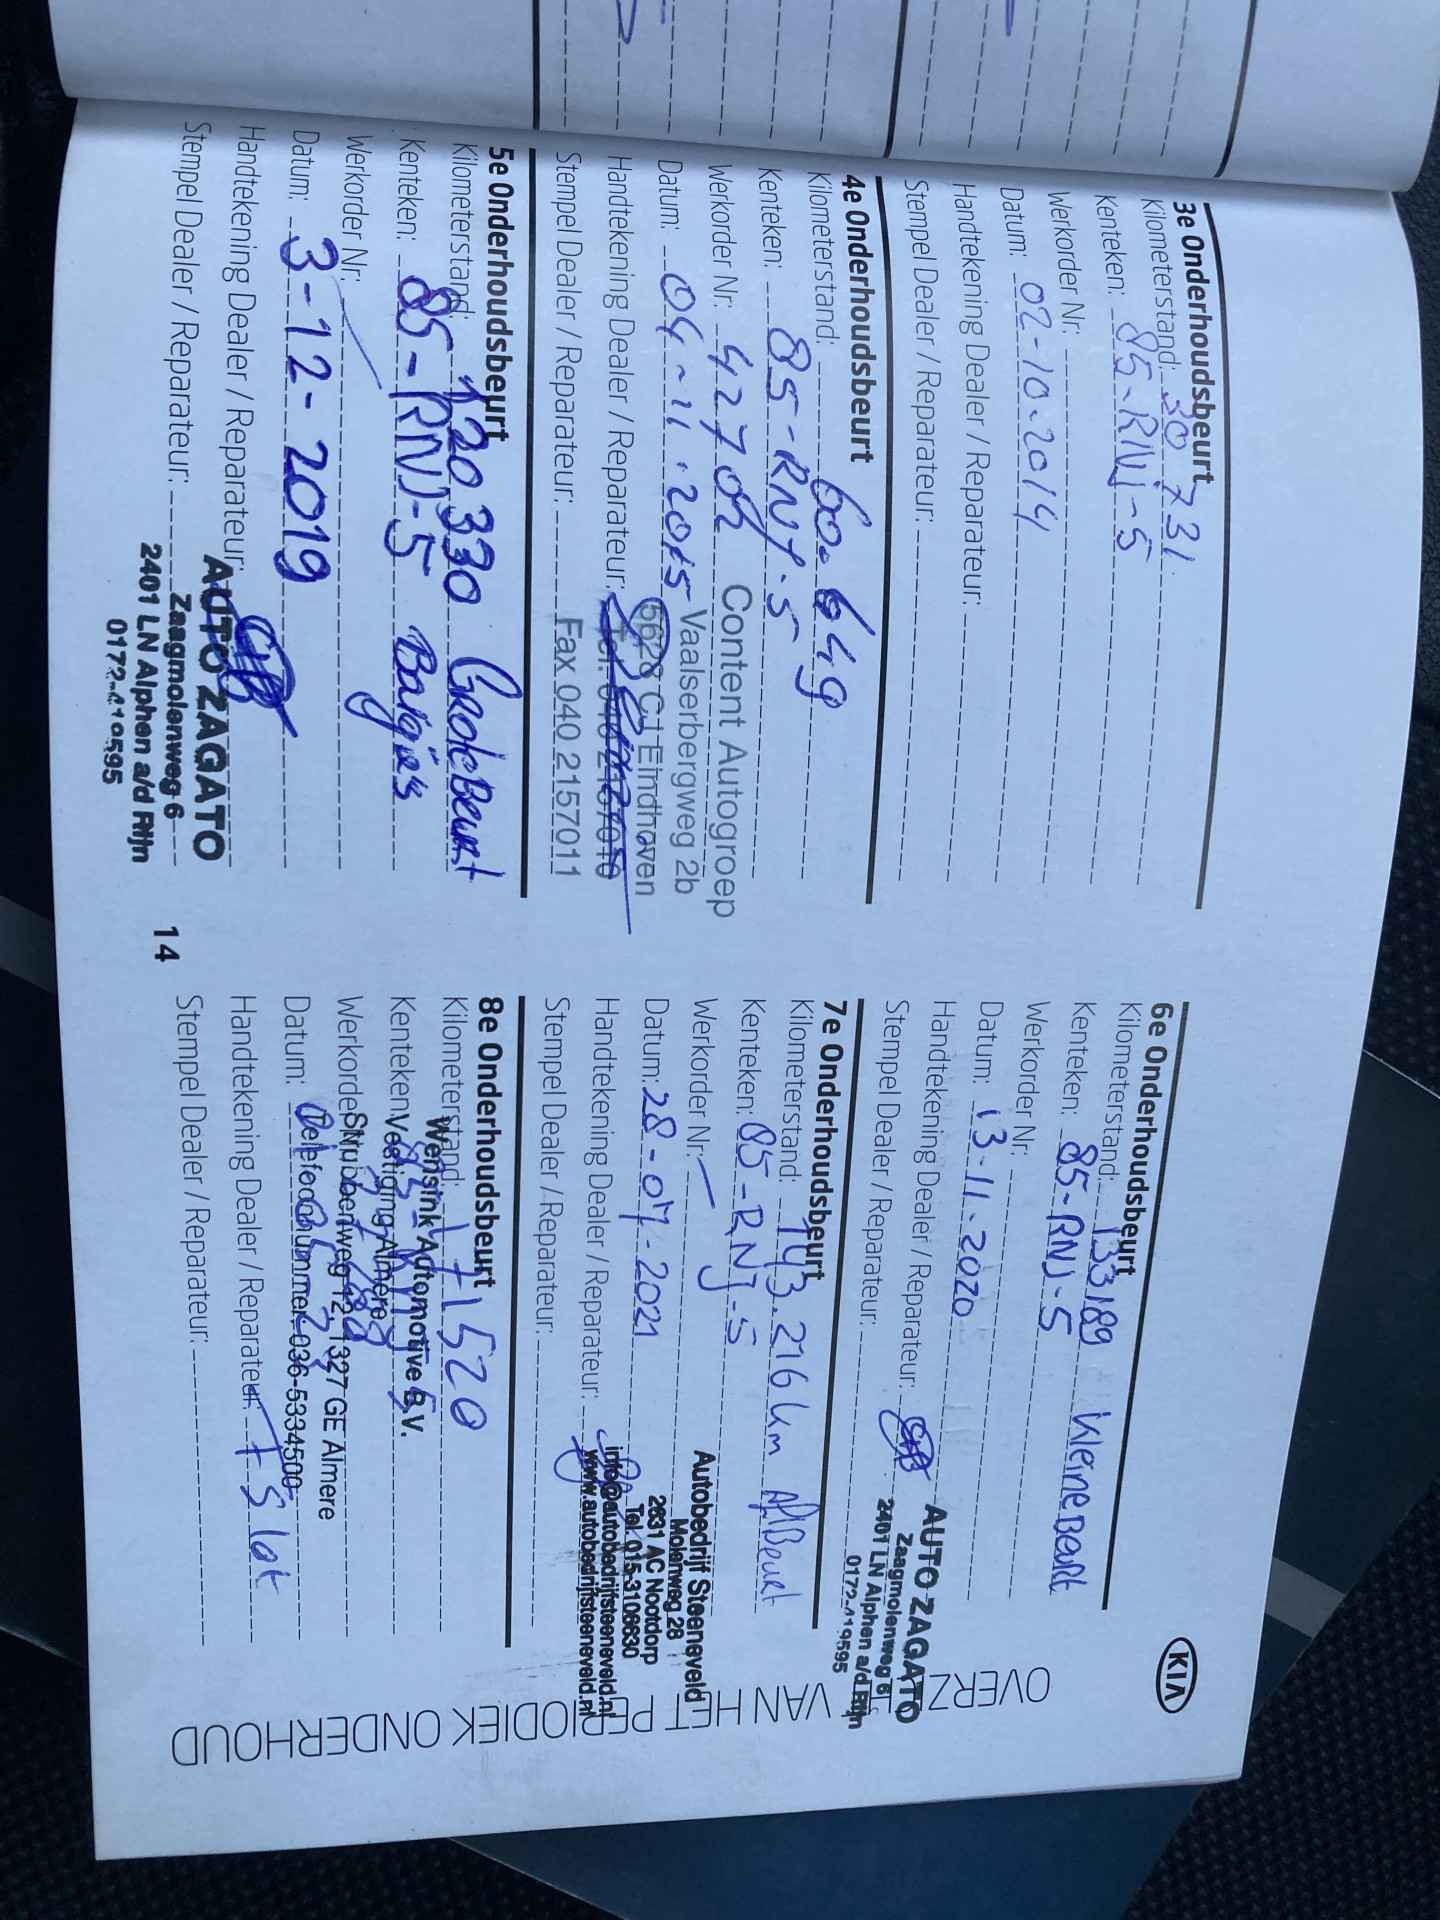 3e Onderhoudsbeurt
Kilometerstand: 30731.
Kenteken: 85-RNJ-5
Werkorder Nr:
Datum: 02-10-2014
Handtekening Dealer / Reparateur:
Stempel Dealer / Reparateur:
4e Onderhoudsbeurt
Kilometerstand: 60.649
Kenteken: 85-RNJ-5
Werkorder Nr: 42704
Datum: 04-11-2015
Handtekening Dealer / Reparateur:
Stempel Dealer / Reparateur:
Content Autogroep
Vaalserbergweg 2b
5628 CJ Eindhoven
Fax 040 2157011
5e Onderhoudsbeurt
Kilometerstand: 120330 Grote Beurt
Kenteken: 85-RNJ-5 Bougie's
Werkorder Nr:
Datum: 3-12-2019
Handtekening Dealer / Reparateur:
Stempel Dealer / Reparateur:
AUTO ZAGATO
Zaagmolenweg 6
2401 LN Alphen a/d Rijn
0172-419595
14
KIA
6e Onderhoudsbeurt
Kilometerstand: 133189 Kleine Beurt
Kenteken: 85-RNJ-5
Werkorder Nr:
Datum: 13-11-2020
Handtekening Dealer / Reparateur:
Stempel Dealer / Reparateur:
AUTO ZAGATO
Zaagmolenweg 6
2401 LN Alphen a/d Rijn
0172-419595
7e Onderhoudsbeurt
Kilometerstand: 143.216 km Afl Beurt
Kenteken: 85-RNJ-5
Werkorder Nr:
Datum: 28-07-2021
Handtekening Dealer / Reparateur:
Stempel Dealer / Reparateur:
Autobedrijf Steeneveld
Molenweg 28
2631 AC Nootdorp
Tel. 015-3108630
info@autobedrijfsteeneveld.nl
www.autobedrijfsteeneveld.nl
8e Onderhoudsbeurt
Kilometerstand: 171520
Kenteken:
Werkorder
Datum:
Handtekening Dealer / Reparateur:
Stempel Dealer / Reparateur:
Wensink Automotive B.V.
Vestiging Almere
Snubbenweg 12, 1327 GE Almere
Telefoonnummer: 036-5334500
OVERZICHT VAN HET PERIODIEK ONDERHOUD